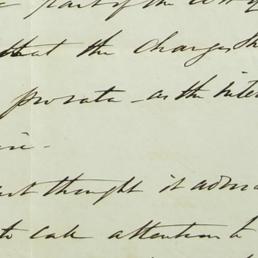 part of the
that the charges th
pro rata - as the inte
thought it advis
to call attention to